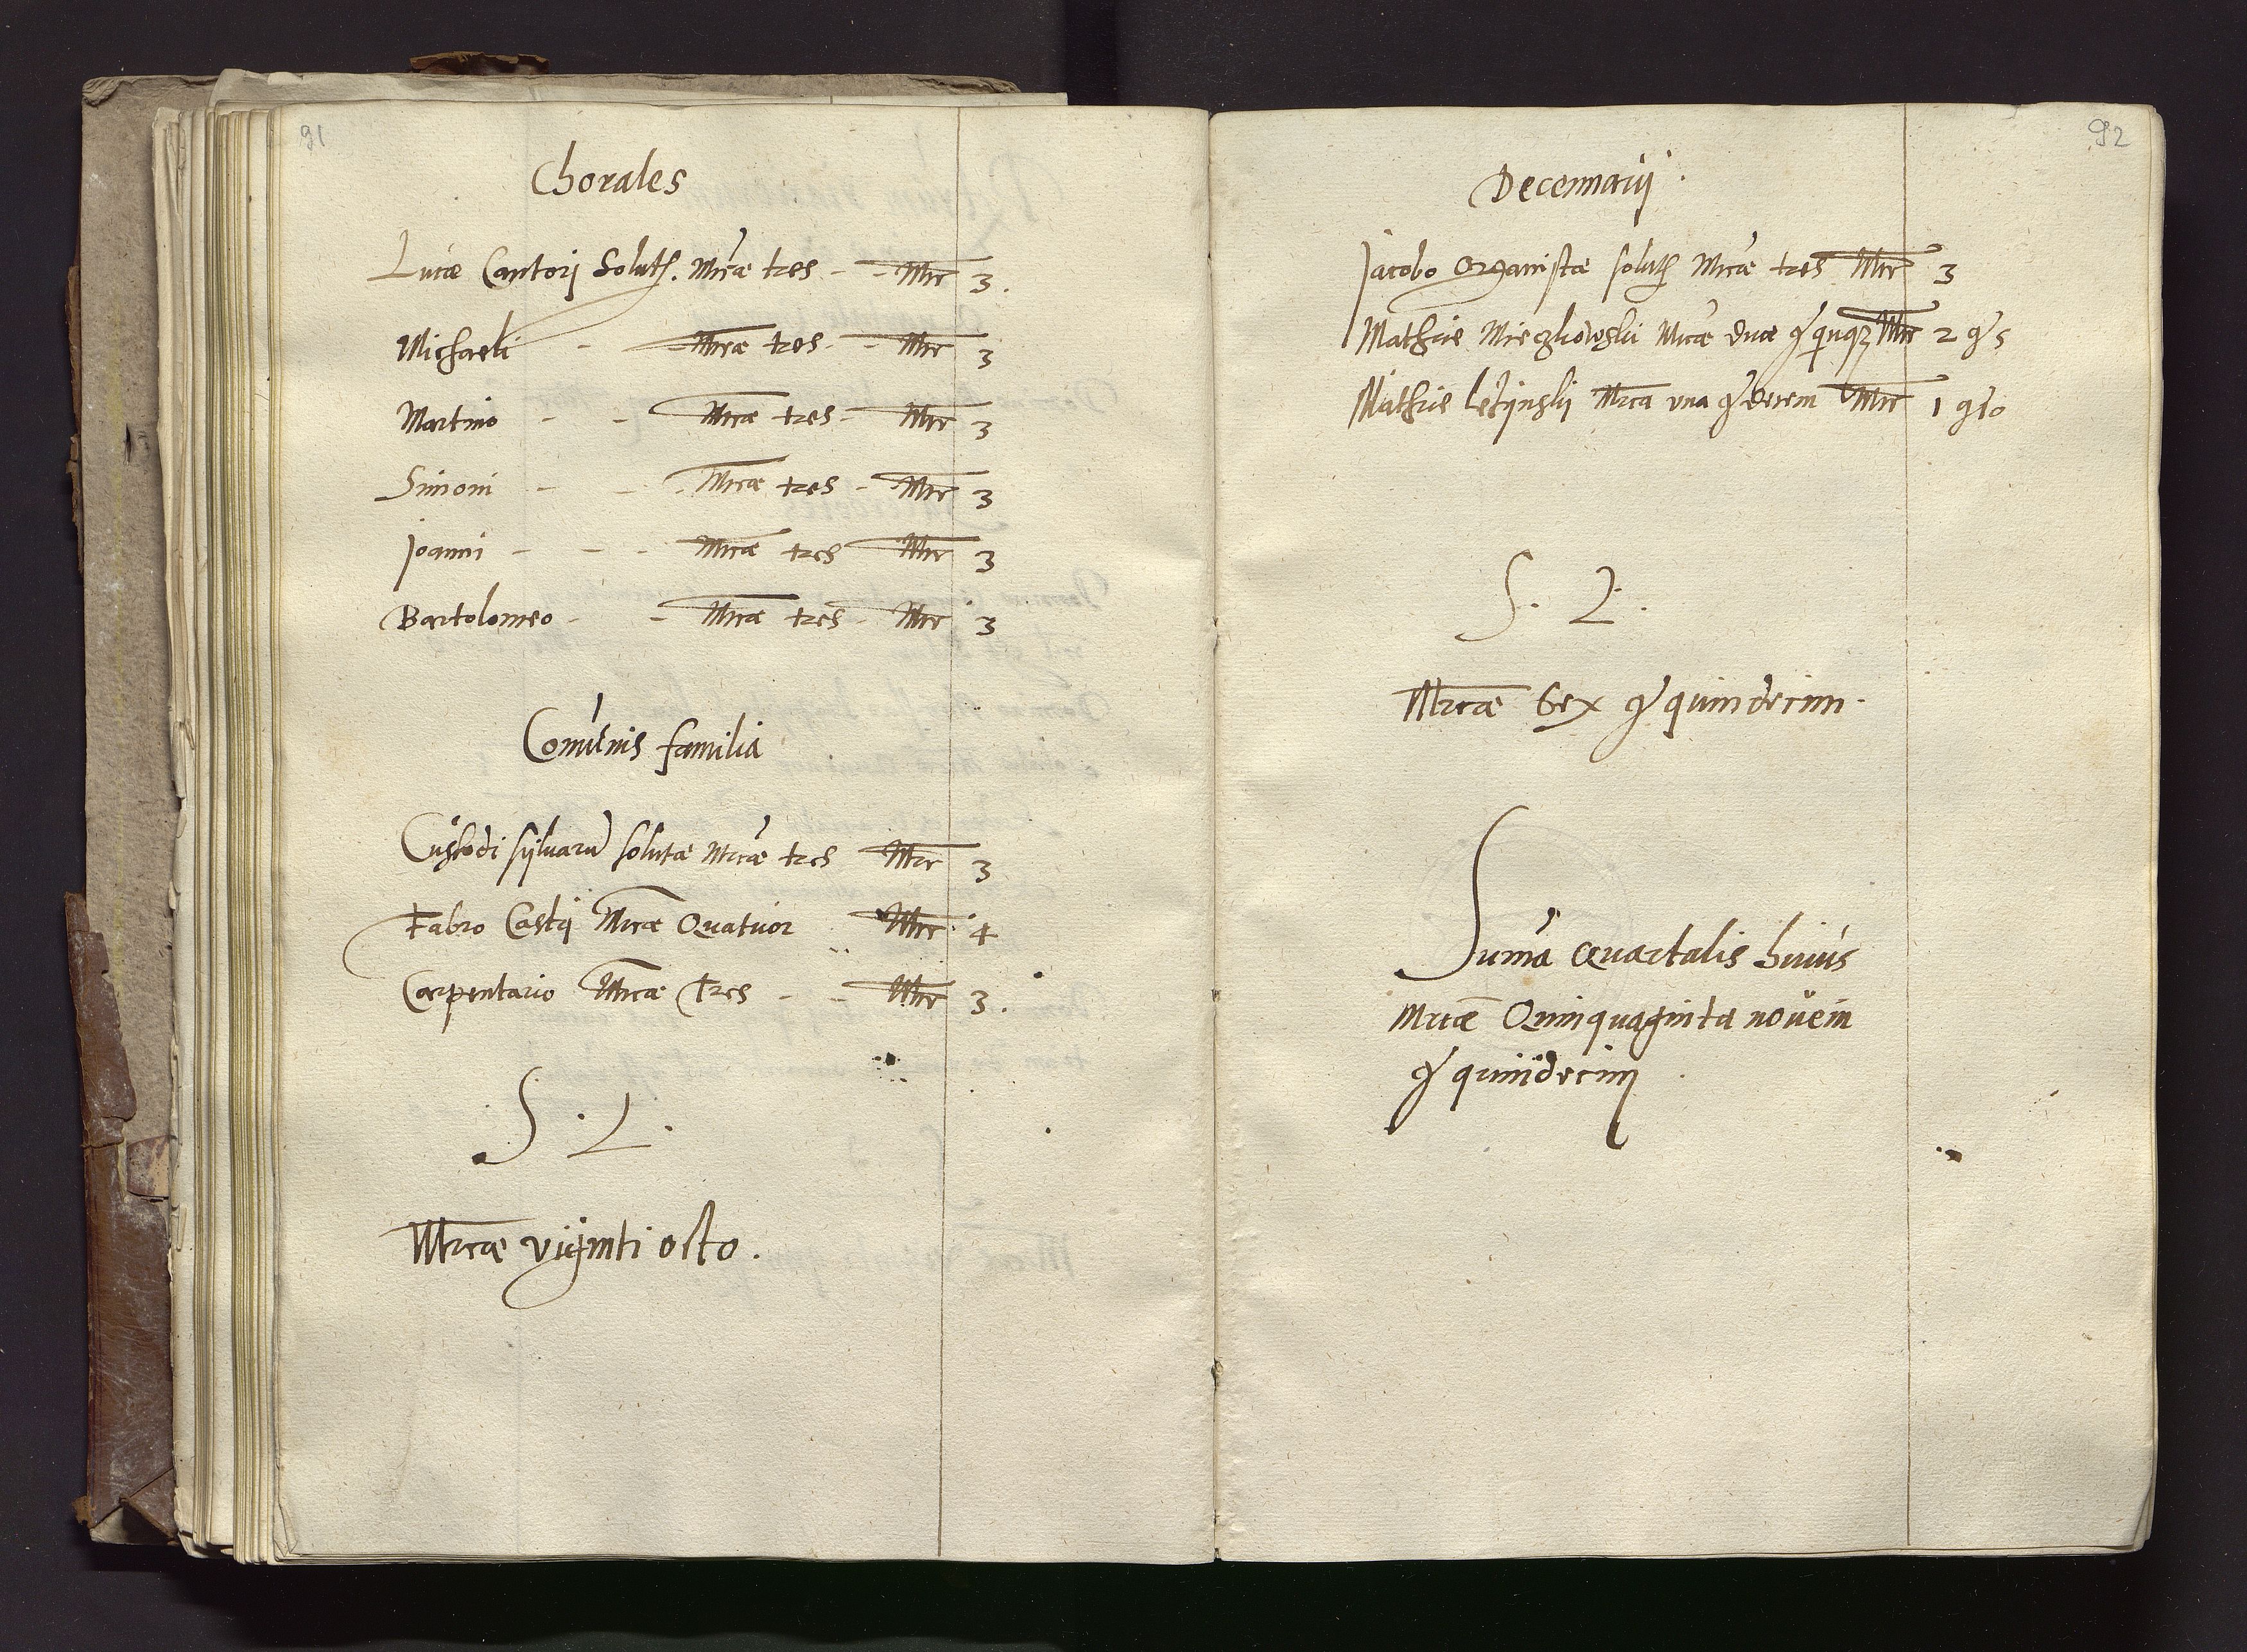 91
Chorales
Lucæ Cantorj Solutæ. Mrcæ tres - - Mrc 3.
Michaeli - Mrcæ tres - - Mrc 3
Martino - - Mrcæ tres - Mrc 3
Simoni - - Mrcæ tres - Mrc 3
Joanni - - - Mrcæ tres Mrc 3
Bartolomeo - - Mrcæ tres - Mrc 3
Comunis familia
Custodi sylvarũ solutæ Mrcæ tres Mrc 3
Fabro Mrcæ Quatuor Mrc 4
Carpentario Mrcæ tres - - Mrc 3.
S. L.
Mrcæ viginti octo.
92
Decennarij
Jacobo Organistæ solutæ Mrcæ tres Mrc 3
Mathiæ Mrcæ duæ g Mrc 2 g 5
Mathiæ Mrca vna g decem Mrc 1 g 10
S. L.
Mrcæ sex g quindecim.
Suma Quartalis huius
Mrcæ Quinquaginta nouem
g quindecim